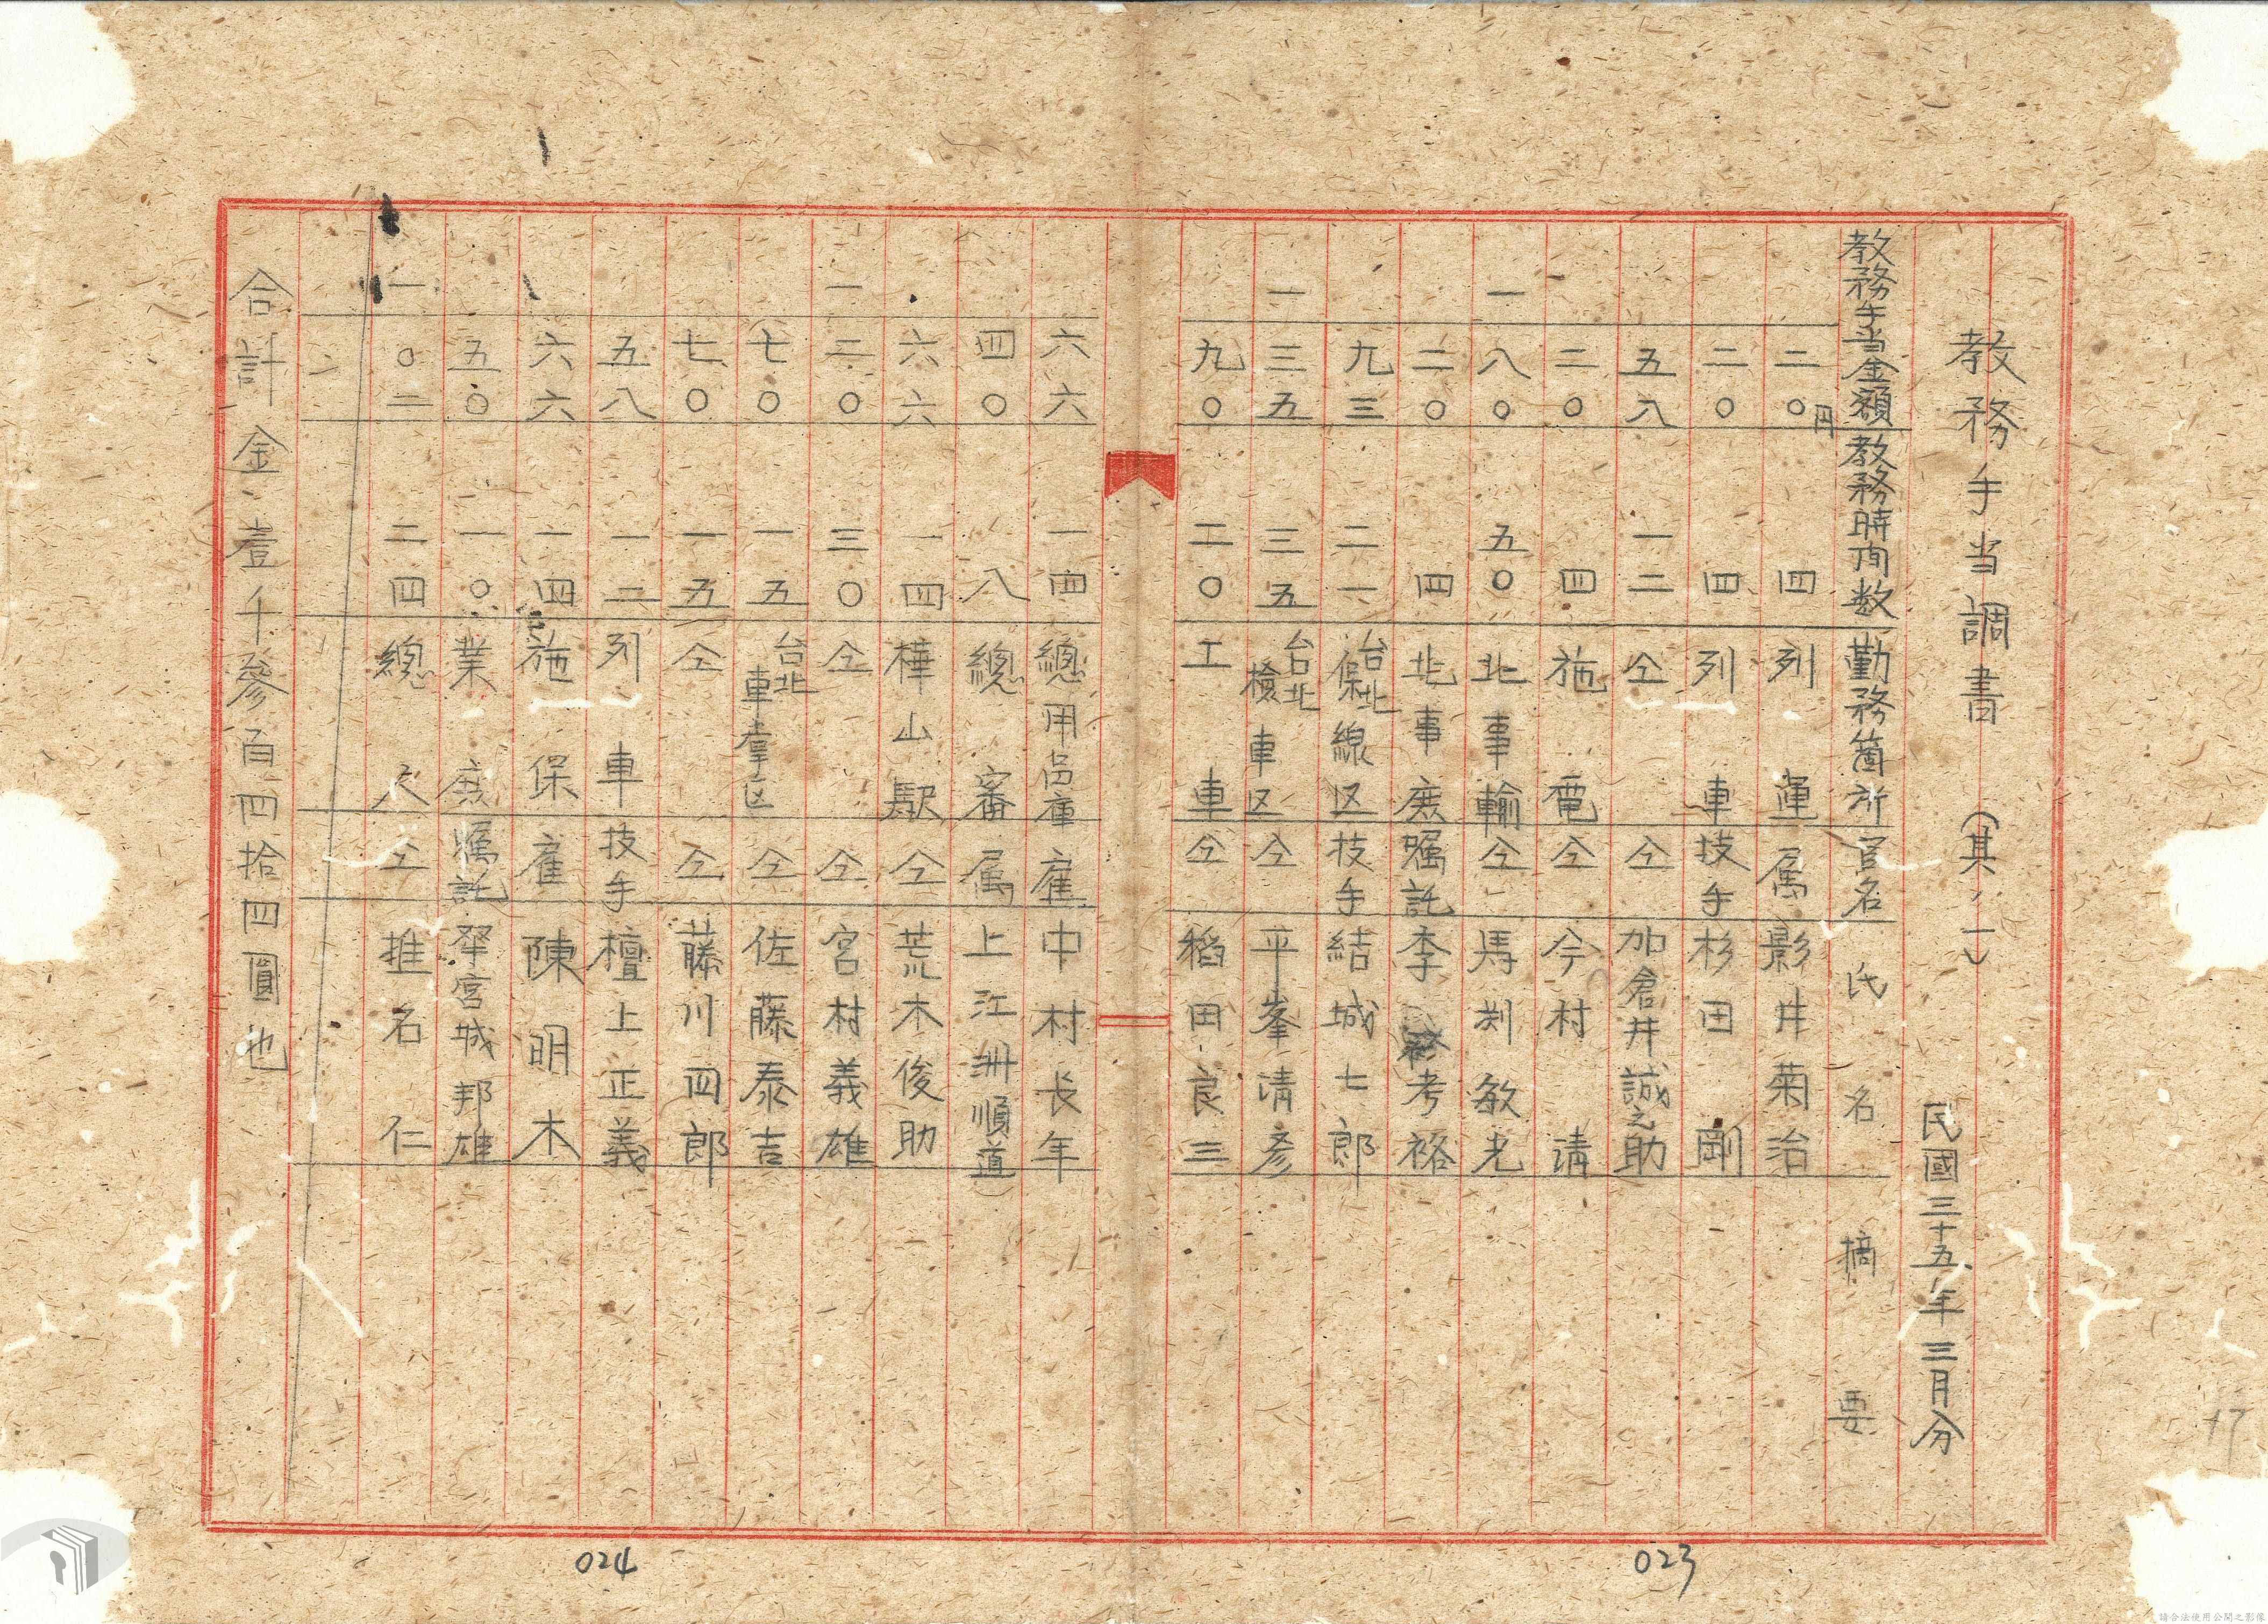 教務手当調書 (其ノ一)
民國三十五年三月分
教務手当金額 教務時間数 勤務箇所 官名 氏名 摘要
二〇円 四 列運 属 影井菊治
二〇 四 列車 技手 杉田剛
五八 一二 仝 仝 加倉井誠之助
二〇 四 施電 仝 今村清
一八〇 五〇 北事輸 仝 馬渕敏光
二〇 四 北事庶 嘱託 李考裕
九三 二一 台北保線区 技手 結城七郎
一三五 三五 台北檢車区 仝 平峯清彦
九〇 二〇 工車 仝 稻田良三
六六 一四 總用品庫 雇 中村长年
四〇 八 總審 属 上江洲順道
六六 一四 樺山駅 仝 荒木俊助
一二〇 三〇 仝 仝 宮村義雄
七〇 一五 台北車掌区 仝 佐藤泰吉
七〇 一五 仝 仝 藤川四郎
五八 一二 列車 技手 檀上正義
六六 一四 施保 雇 陳明木
五〇 一〇 業庶 嘱託 宮城邦雄
一〇二 二四 總人 仝 推名仁
合計金壹千參百四拾四圓也
023
024
17
請合法使用公開之影像